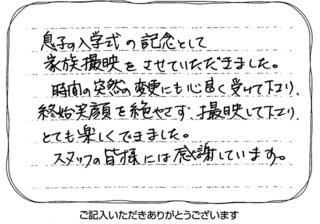 息子の入学式の記念として
家族撮影をさせていただきました。
時間の突然の変更にも心良く受けて下さり、
終始笑顔を絶やさず、撮影して下さり、
とても楽しくできました。
スタッフの皆様には感謝しています。
ご記入いただきありがとうございます